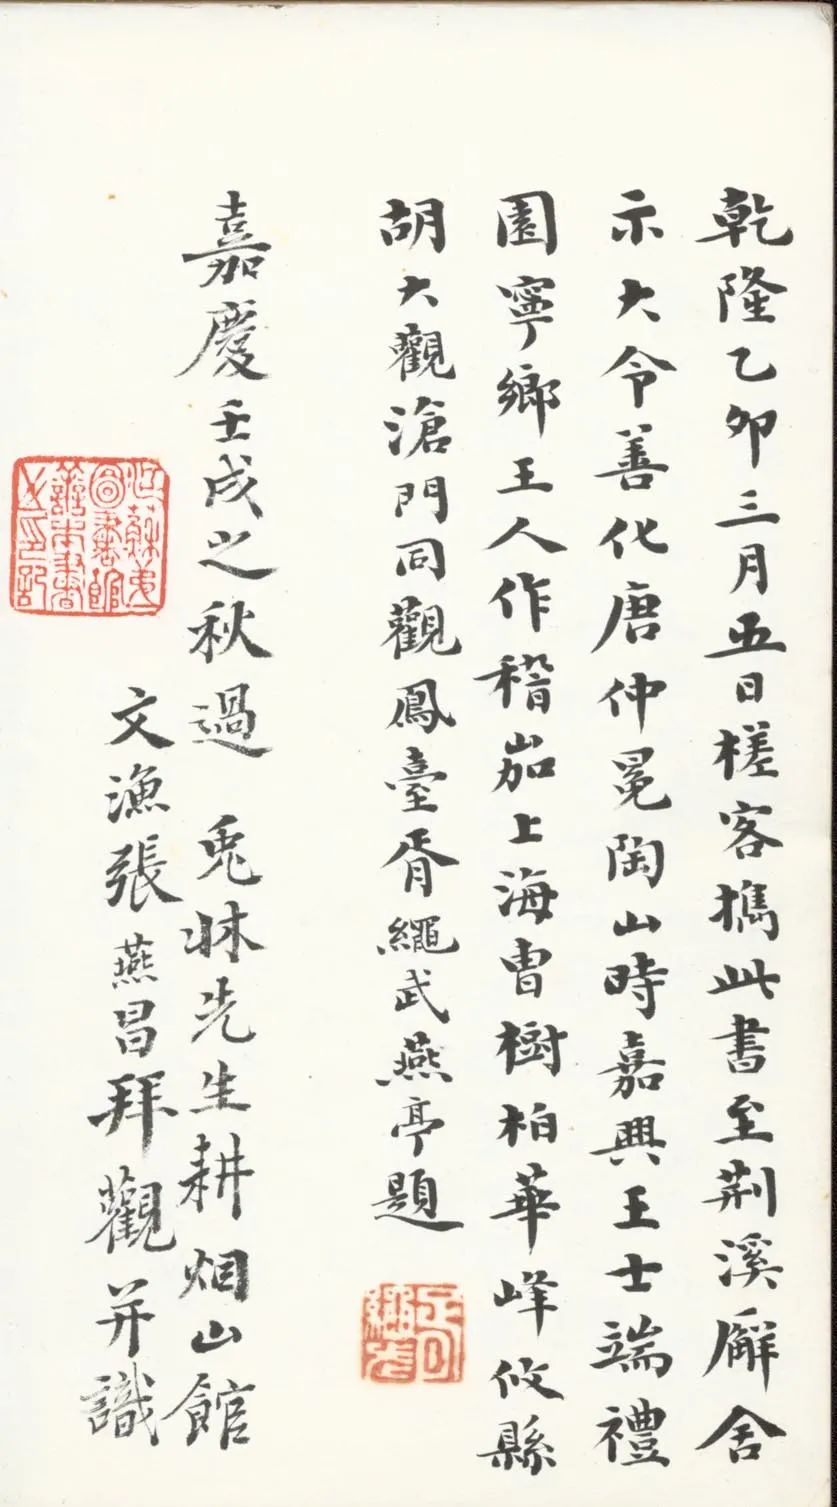 乾隆乙夘三月五日槎客㩦此書至荆溪廨舍
示大令善化唐仲冕陶山時嘉興王士端禮
園寧鄉王人作稽茄上海曺樹柏華峰攸縣
胡大觀滄門同觀鳳臺胥繩武燕亭題
嘉慶壬戌之秋過 兎牀先生耕烟山館
文漁張燕昌拜觀并識
江蘇第一
圖書館
善本書
之印記